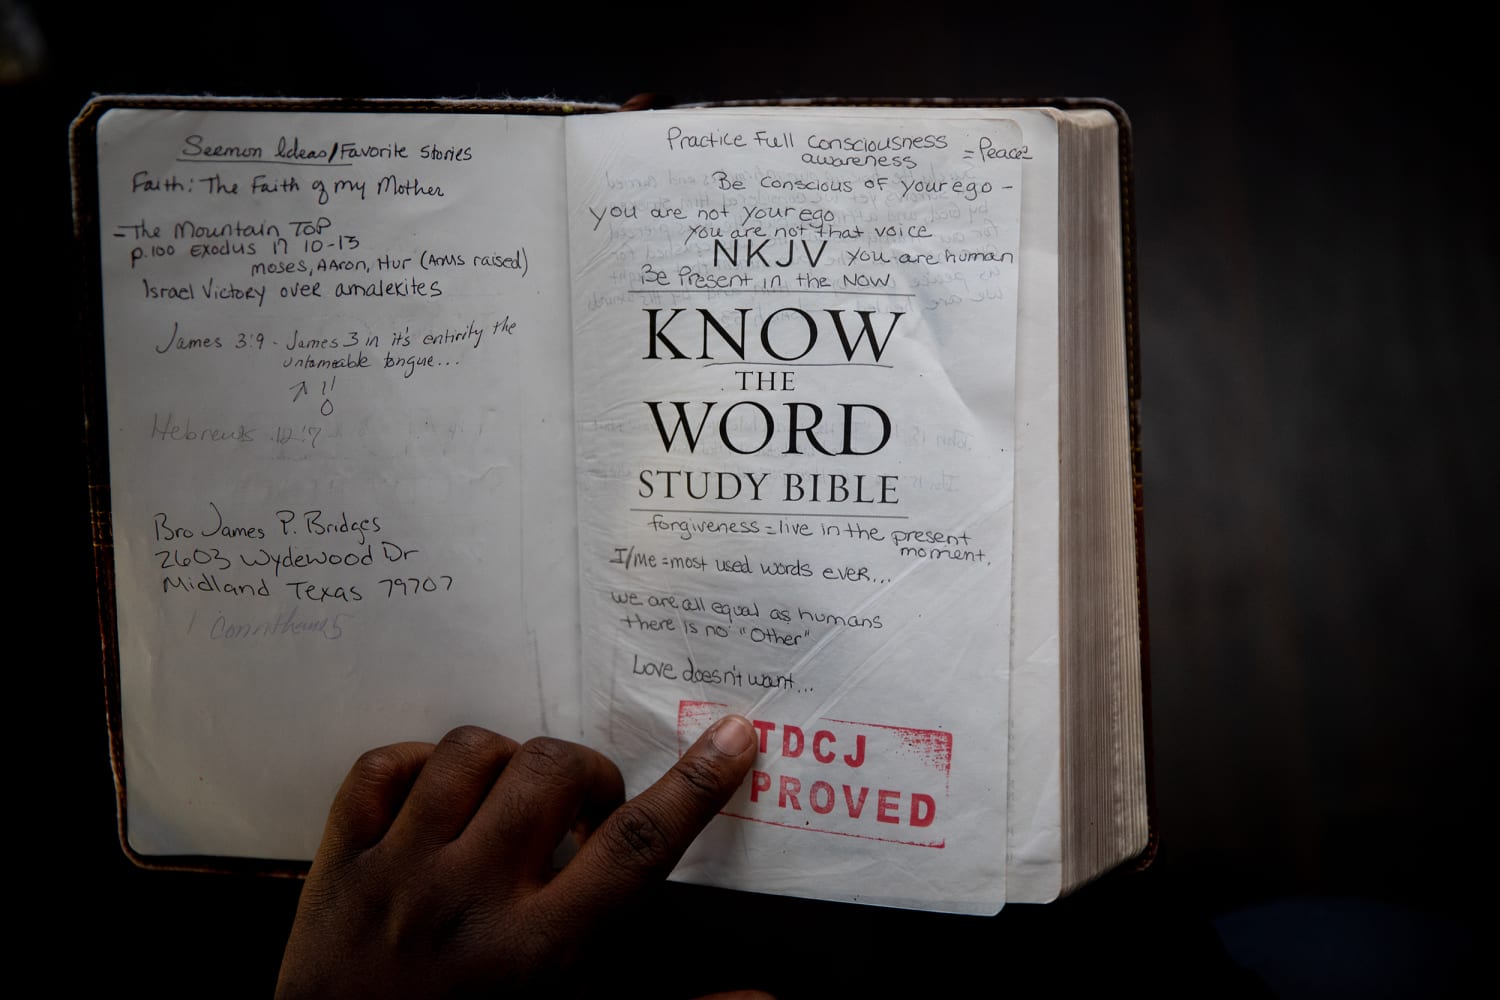 Sermon Ideas/Favorite Stories
Faith: The Faith of my Mother
-The Mountain Top
p.100 Exodus 17 10-13
Moses, Aaron, Hur (Arms raised)
Israel Victory over amalekites
James 3:9 - James 3 in it's entirity the
untameable tongue...
Hebrews 12:7
Bro James P. Bridges
2603 Wydewood Dr
Midland Texas 79707
1 Corinthians 5
Practice Full consciousness = Peace
awareness
Be conscious of your ego -
you are not your ego
you are not that voice
NKJV you are human
Be Present in the NOW
KNOW
THE
WORD
STUDY BIBLE
forgiveness = live in the present
moment.
I/Me = most used words ever...
we are all equal as humans
there is no "Other"
Love doesn't want...
TDCJ
PROVED